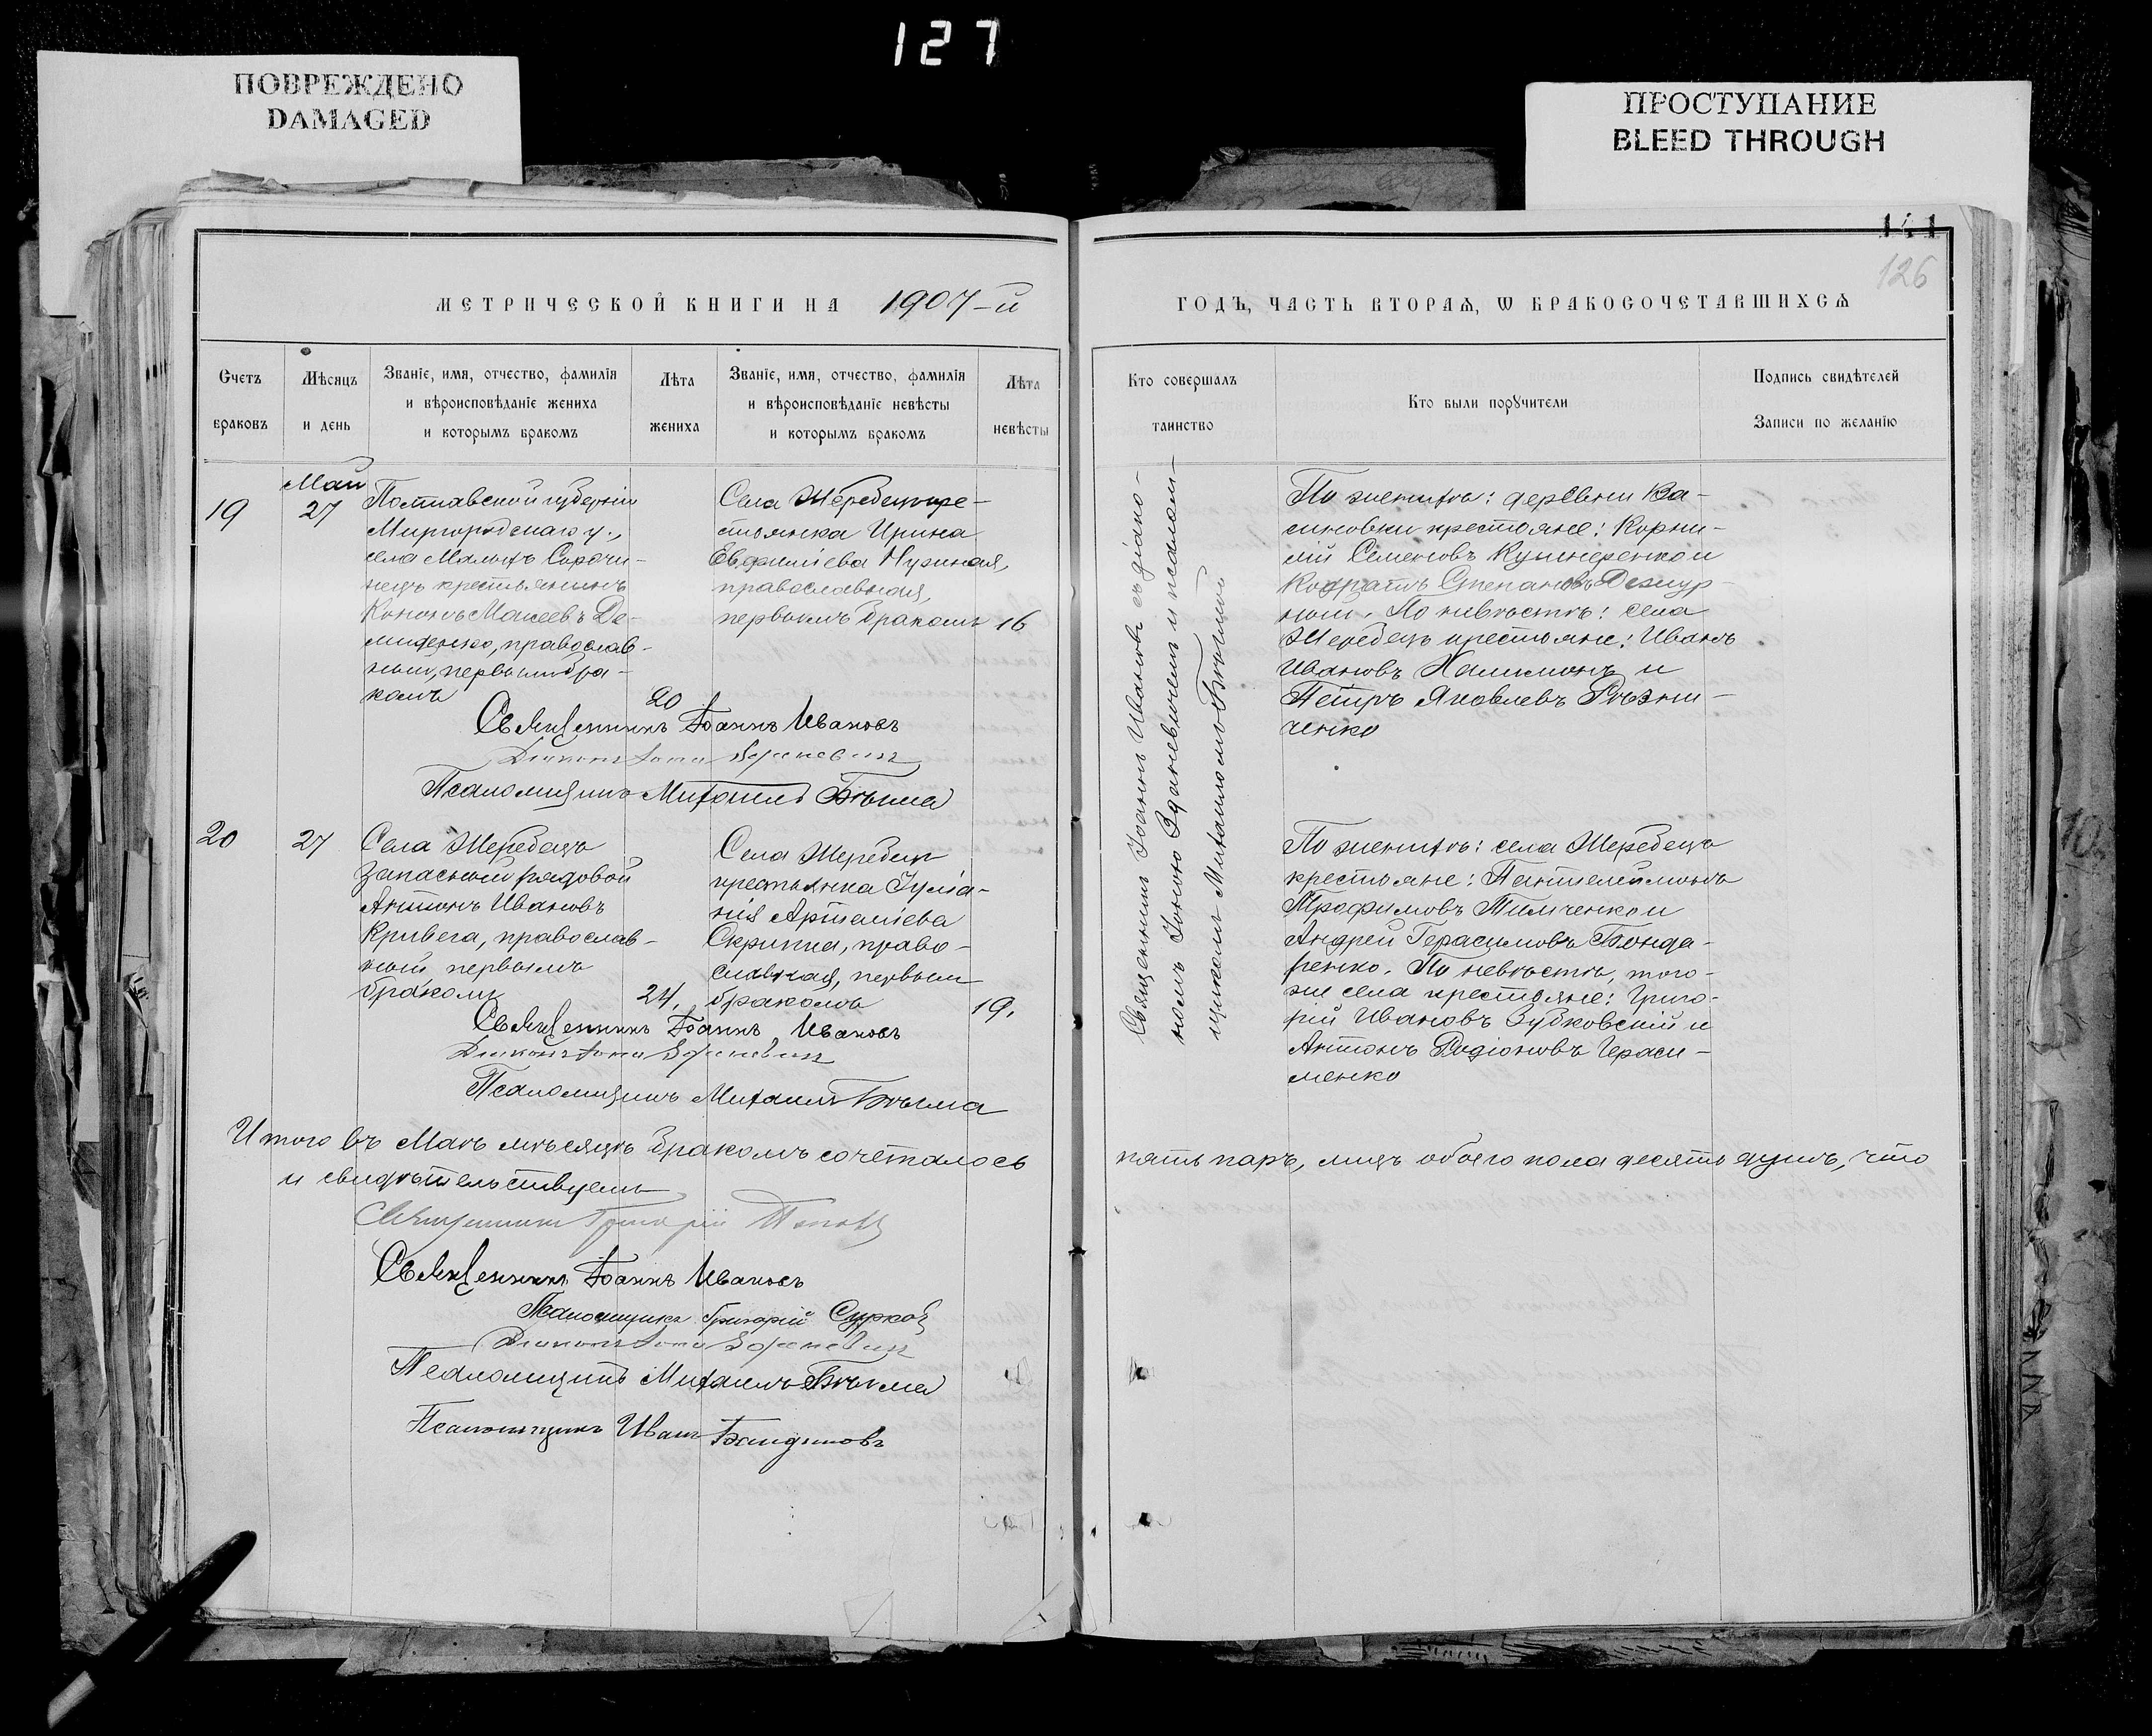 127
ПОВРЕЖДЕНО
DAMAGED
ПРОСТУПАНИЕ
BLEED THROUGH
126
МЕТРИЧЕСКОЙ КНИГИ НА 1907-й
ГОДЪ, ЧАСТЬ ВТОРАѦ, Ѡ БРАКОСОЧЕТАВШИХСѦ
Счетъ браковъ
Мѣсяцъ и день
Званіе, имя, отчество, фамилія
и вѣроисповѣданіе жениха
и которымъ бракомъ
Лѣта жениха
Званіе, имя, отчество, фамилія
и вѣроисповѣданіе невѣсты
и которымъ бракомъ
Лѣта невѣсты
Кто совершалъ таинство
Кто были поручители
Подпись свидѣтелей
Записи по желанію
19
Май
27
Полтавской губерніи
Миргородскаго у.,
села Малыхъ Сорочи-
нецъ крестьянинъ
Кононъ Моисеевъ Де-
миденко, православ-
ный, первымъ бра-
комъ
20
Села Жеребецъ кре-
стьянка Ирина
Евфиміева
православная,
первымъ бракомъ 16
Священникъ Іоаннъ Ивановъ съ діако-
номъ Іоною Зданевичемъ и псалом-
щикомъ Михаиломъ
По женихѣ: деревни Ва-
синовки крестьяне: Корни-
лій Семеновъ Кушнеренко и
Кодратъ Степановъ Дежур-
ный. По невѣстѣ: села
Жеребецъ крестьяне: Иванъ
Ивановъ Халимонъ и
Петръ Яковлевъ Рѣзни-
ченко
Священникъ Іоаннъ Ивановъ
Діаконъ Іона Зданевичъ
Псаломщикъ Михаилъ
20
27
Села Жеребецъ
запасной рядовой
Антонъ Ивановъ
Кривега, православ-
ный первымъ
бракомъ
24.
Села Жеребецъ
крестьянка Іуліа-
нія Артеміева
Скрипка, право-
славная, первымъ
бракомъ
19.
По женихѣ: села Жеребецъ
крестьяне: Пантелеймонъ
Трофимовъ Тимченко и
Андрей Герасимовъ Бонда-
ренко. По невѣстѣ, того-
же села крестьяне: Григо-
рій Ивановъ Зубковскій и
Антонъ Родіоновъ Гераси-
менко
Священникъ Іоаннъ Ивановъ
Діаконъ Іона Зданевичъ
Псаломщикъ Михаилъ
Итого въ Маѣ мѣсяцѣ бракомъ сочеталось
пять паръ, лицъ обоего пола десять душъ, что
и свидѣтельствуемъ
Священникъ Григорій Поповъ
Священникъ Іоаннъ Ивановъ
Псаломщикъ Григорій Сурковъ
Діаконъ Іона Зданевичъ
Псаломщикъ Михаилъ
Псаломщикъ Иванъ